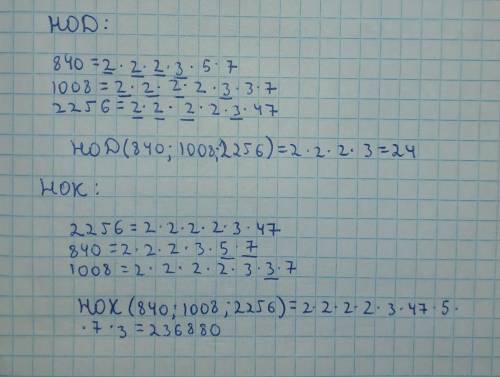 НОД:
840 = 2 · 2 · 2 · 3 · 5 · 7
1008 = 2 · 2 · 2 · 2 · 3 · 3 · 7
2256 = 2 · 2 · 2 · 2 · 3 · 47
НОД (840; 1008; 2256) = 2 · 2 · 2 · 3 = 24
НОК:
2256 = 2 · 2 · 2 · 2 · 3 · 47
840 = 2 · 2 · 2 · 3 · 5 · 7
1008 = 2 · 2 · 2 · 2 · 3 · 3 · 7
НОК (840; 1008; 2256) = 2 · 2 · 2 · 2 · 3 · 47 · 5 ·
· 7 · 3 = 236880